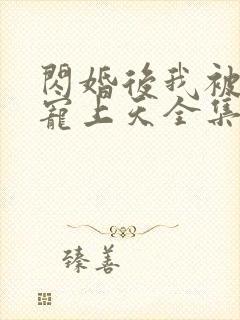 閃婚後我被
寵上天全集
臻善